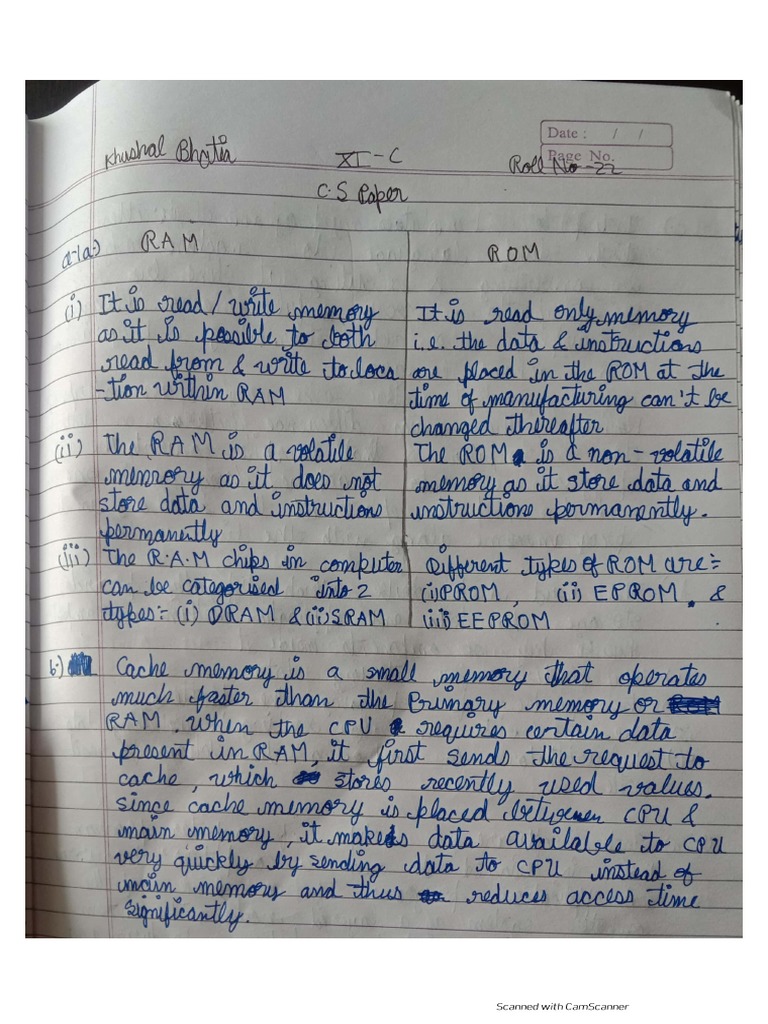 Khushal Bhatia XI-C Roll No-22
Date : / /
Page No.
C.S Paper
a-1a.) RAM ROM
(i) It is read / write memory
as it is possible to both
read from & write to loca
-tion within RAM
It is read only memory
i.e. the data & instructions
are placed in the ROM at the
time of manufacturing can't be
changed thereafter
(ii) The RAM is a volatile
memory as it does not
store data and instructions
permanently
The ROM is a non-volatile
memory as it store data and
instructions permanently.
(iii) The R.A.M chips in computer
can be categorised into 2
types:- (i) DRAM & (ii) SRAM
Different types of ROM are:-
(i) PROM, (ii) EPROM. &
(iii) EEPROM
b.) Cache memory is a small memory that operates
much faster than the Primary memory or
RAM. When the CPU requires certain data
present in RAM, it first sends the request to
cache, which stores recently used values.
since cache memory is placed between CPU &
main memory, it makes data available to CPU
very quickly by sending data to CPU instead of
main memory and thus reduces access time
significantly.
Scanned with CamScanner